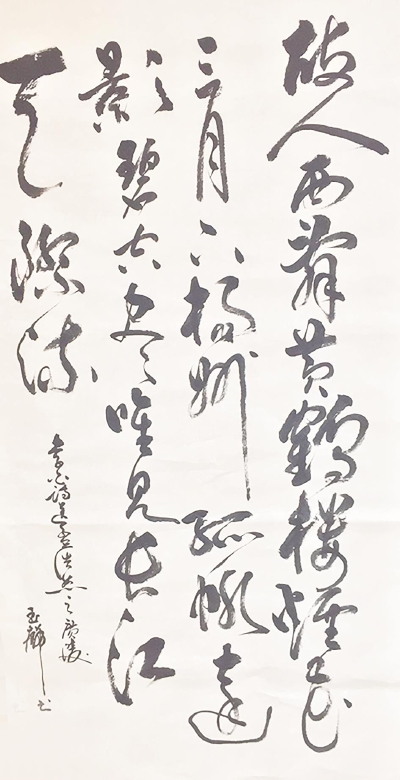 故人西辭黄鶴樓煙花
三月下揚州孤帆遠
影碧空尽唯見長江
天際流
李白詩送孟浩然之廣陵
玉麟书